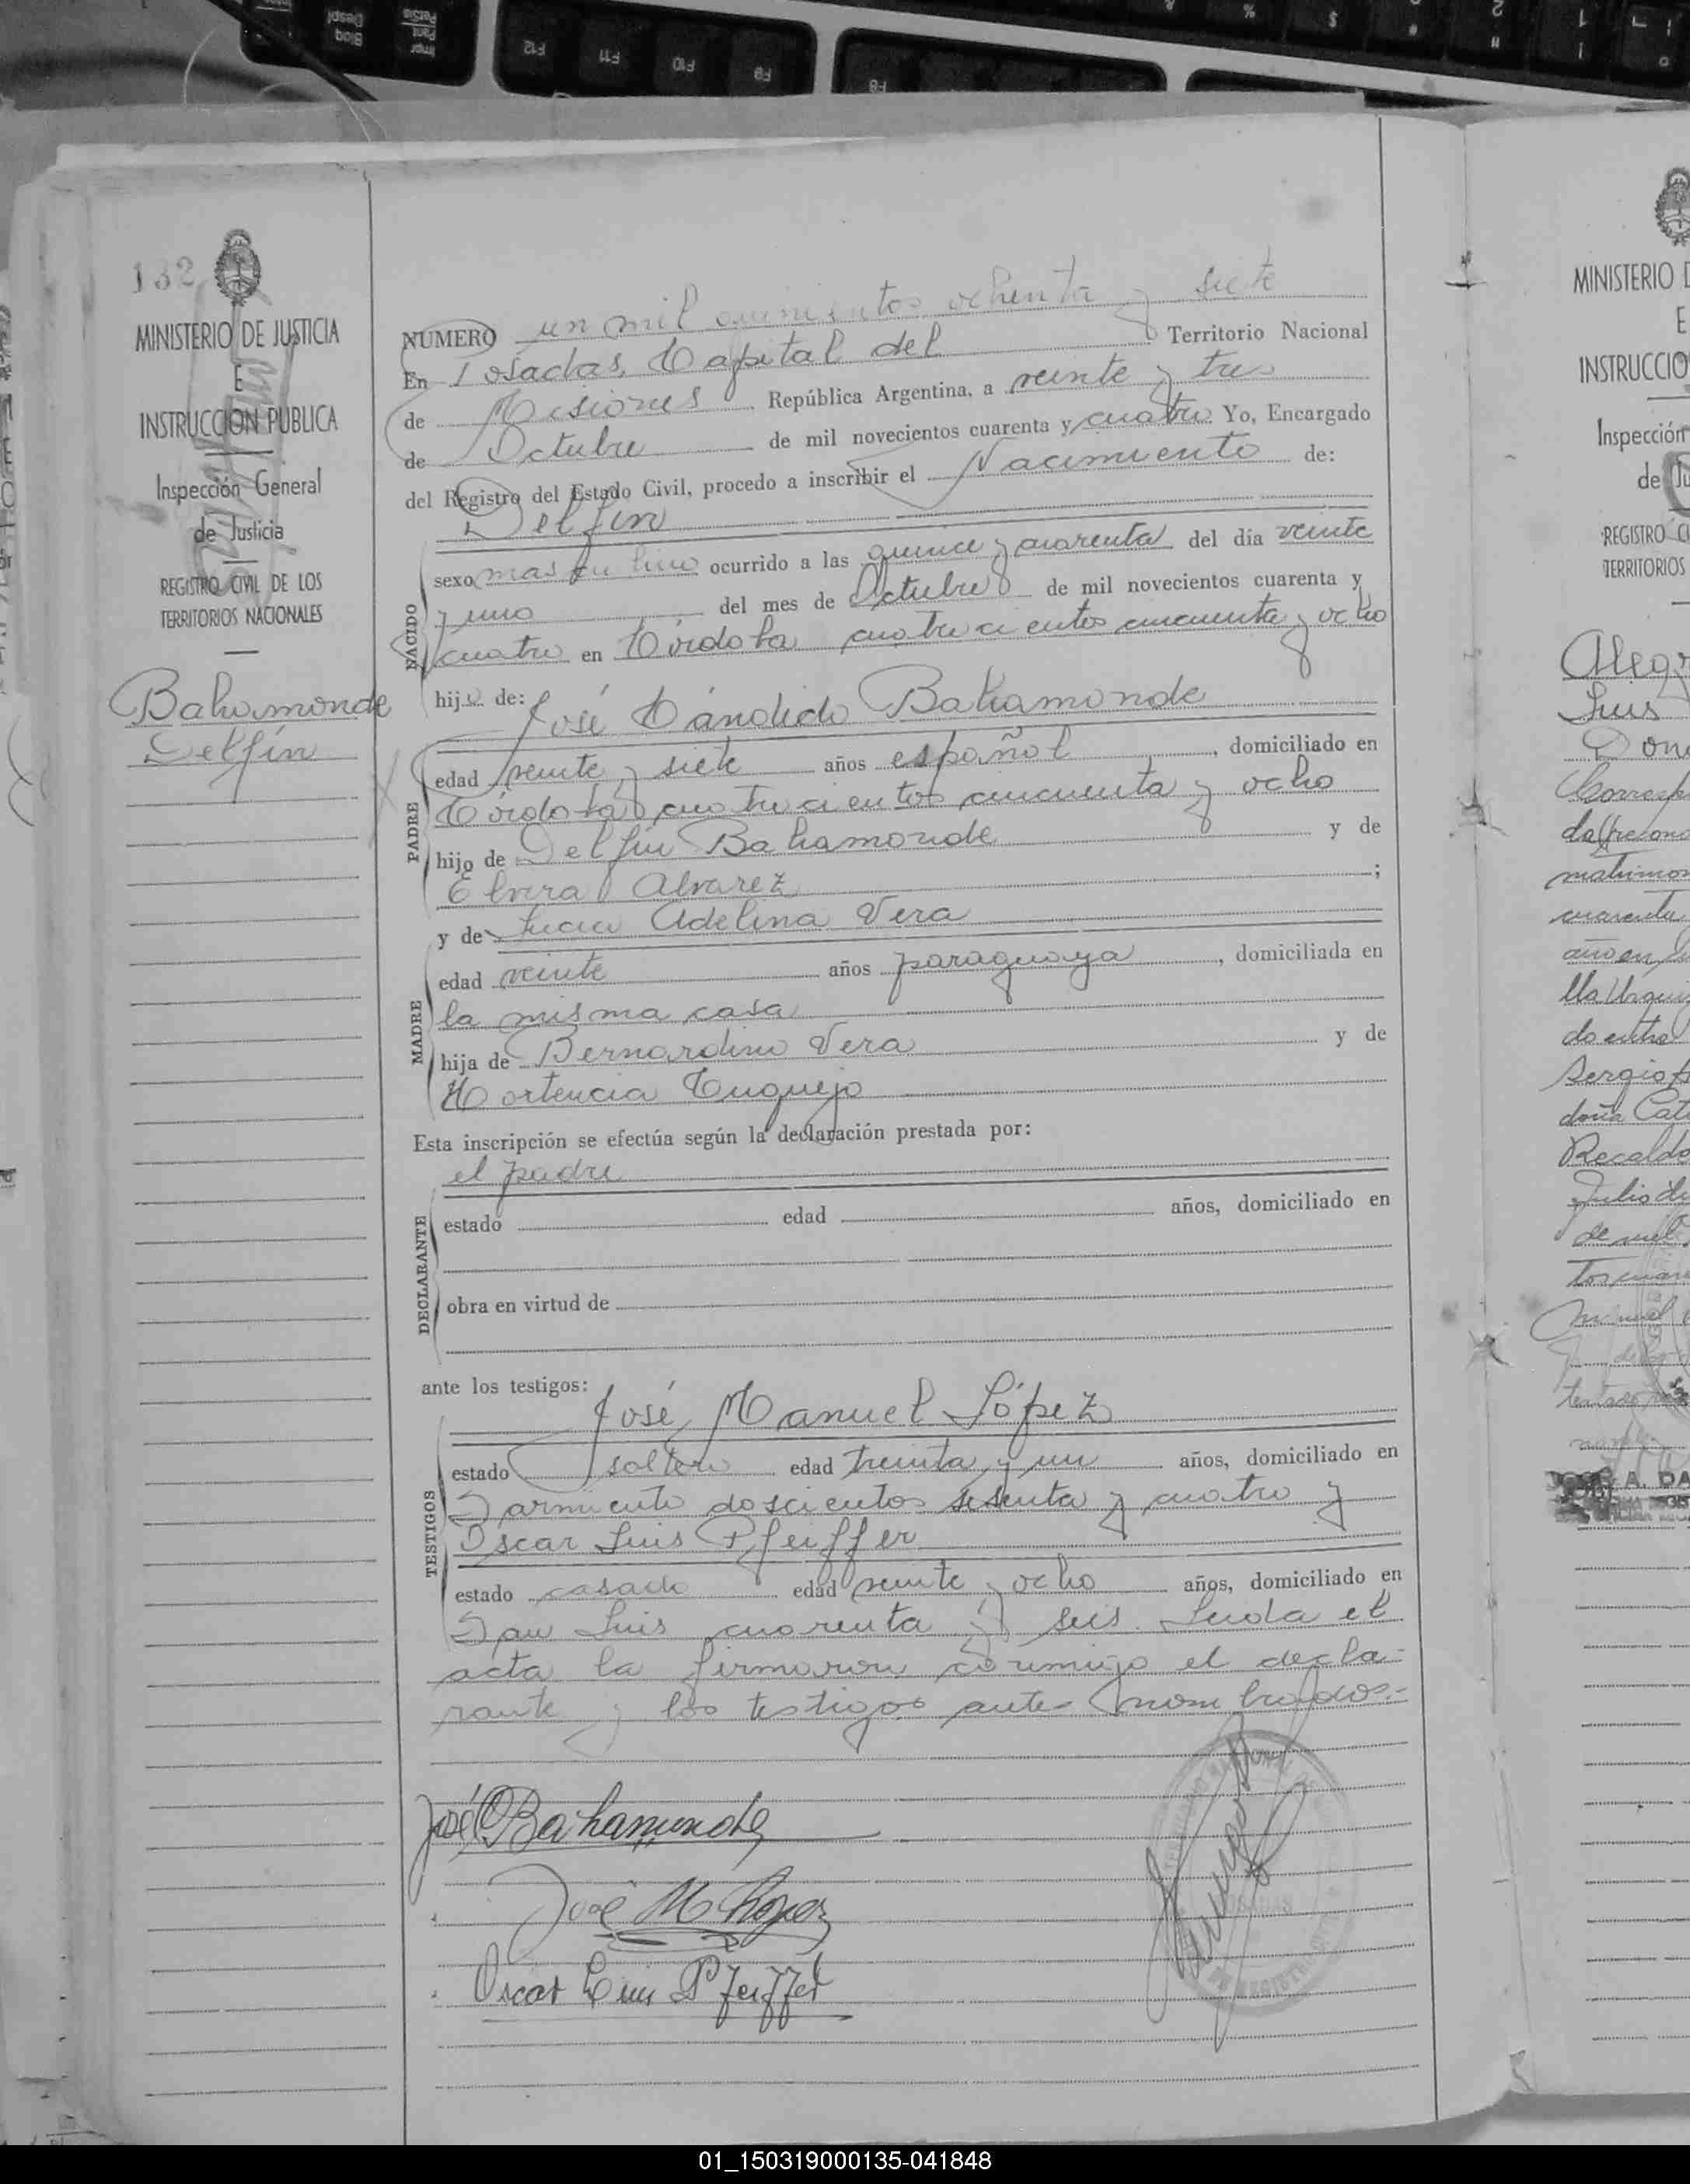 132
MINISTERIO DE JUSTICIA
E
INSTRUCCION PUBLICA
Inspección General
de Justicia
REGISTRO CIVIL DE LOS
TERRITORIOS NACIONALES
Bahamonde
Delfín
NUMERO un mil quinientos ochenta y siete
En Posadas, Capital del Territorio Nacional
de Misiones República Argentina, a veinte y tres
de Octubre de mil novecientos cuarenta y cuatro Yo, Encargado
del Registro del Estado Civil, procedo a inscribir el Nacimiento de:
Delfin
NACIDO
sexo masculino ocurrido a las quince y cuarenta del día veinte
y uno del mes de Octubre de mil novecientos cuarenta y
cuatro en Córdoba cuatrocientos cincuenta y ocho
hijo de: José Cándido Bahamonde
PADRE
edad veinte y siete años español, domiciliado en
Córdoba cuatrocientos cincuenta y ocho
hijo de Delfin Bahamonde y de
Elvira Alvarez;
y de Lucia Adelina Vera
MADRE
edad veinte años paraguaya, domiciliada en
la misma casa
hija de Bernardino Vera y de
Hortencia Cuquejo
Esta inscripción se efectúa según la declaración prestada por:
el padre
DECLARANTE
estado edad años, domiciliado en
obra en virtud de
ante los testigos:
José Manuel López
TESTIGOS
estado soltero edad treinta y un años, domiciliado en
Sarmiento doscientos sesenta y cuatro y
Oscar Luis Pfeiffer
estado casado edad veinte y ocho años, domiciliado en
San Luis cuarenta y seis. Leida el
acta la firmaron conmigo el decla-
rante y los testigos antes nombrados.-
José C Bahamonde
José M López
Oscar Luis Pfeiffer
MINISTERIO D
E
INSTRUCCIO
Inspección
de Ju
REGISTRO CI
TERRITORIOS
Luis
01_150319000135-041848